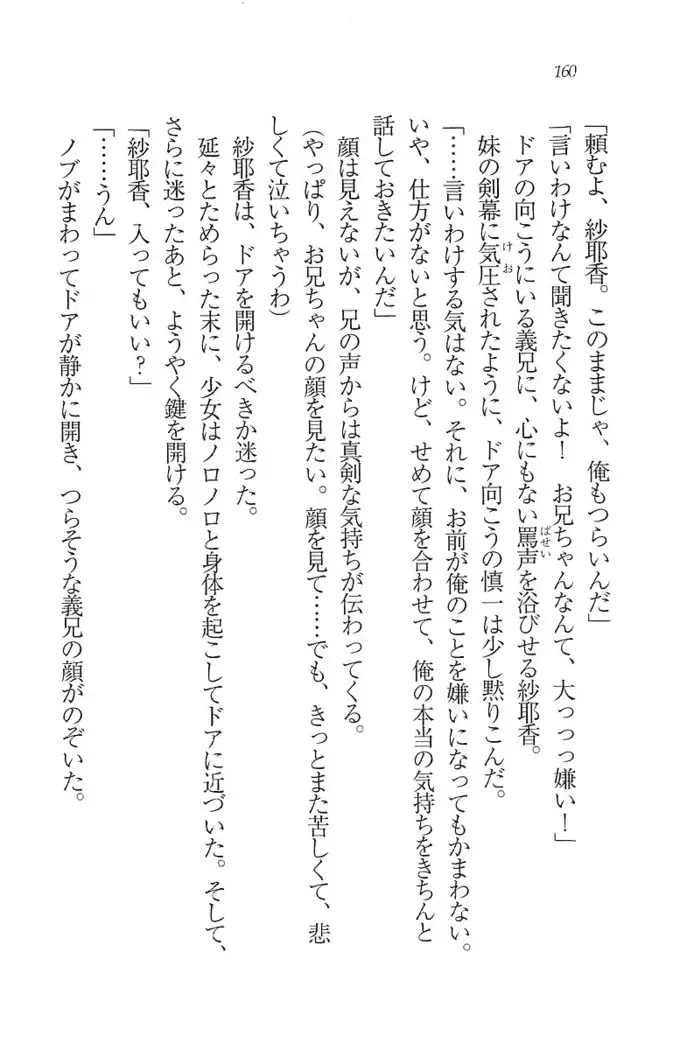 160
「頼むよ、紗耶香。このままじゃ、俺もつらいんだ」
「言いわけなんて聞きたくないよ！　お兄ちゃんなんて、大っっっ嫌い！」
ドアの向こうにいる義兄に、心にもない罵声を浴びせる紗耶香。
妹の剣幕に気圧されたように、ドア向こうの慎一は少し黙りこんだ。
「……言いわけする気はない。それに、お前が俺のことを嫌いになってもかまわない。
いや、仕方がないと思う。けど、せめて顔を合わせて、俺の本当の気持ちをきちんと
話しておきたいんだ」
顔は見えないが、兄の声からは真剣な気持ちが伝わってくる。
（やっぱり、お兄ちゃんの顔を見たい。顔を見て……でも、きっとまた苦しくて、悲
しくて泣いちゃうわ）
紗耶香は、ドアを開けるべきか迷った。
延々とためらった末に、少女はノロノロと身体を起こしてドアに近づいた。そして、
さらに迷ったあと、ようやく鍵を開ける。
「紗耶香、入ってもいい？」
「……うん」
ノブがまわってドアが静かに開き、つらそうな義兄の顔がのぞいた。